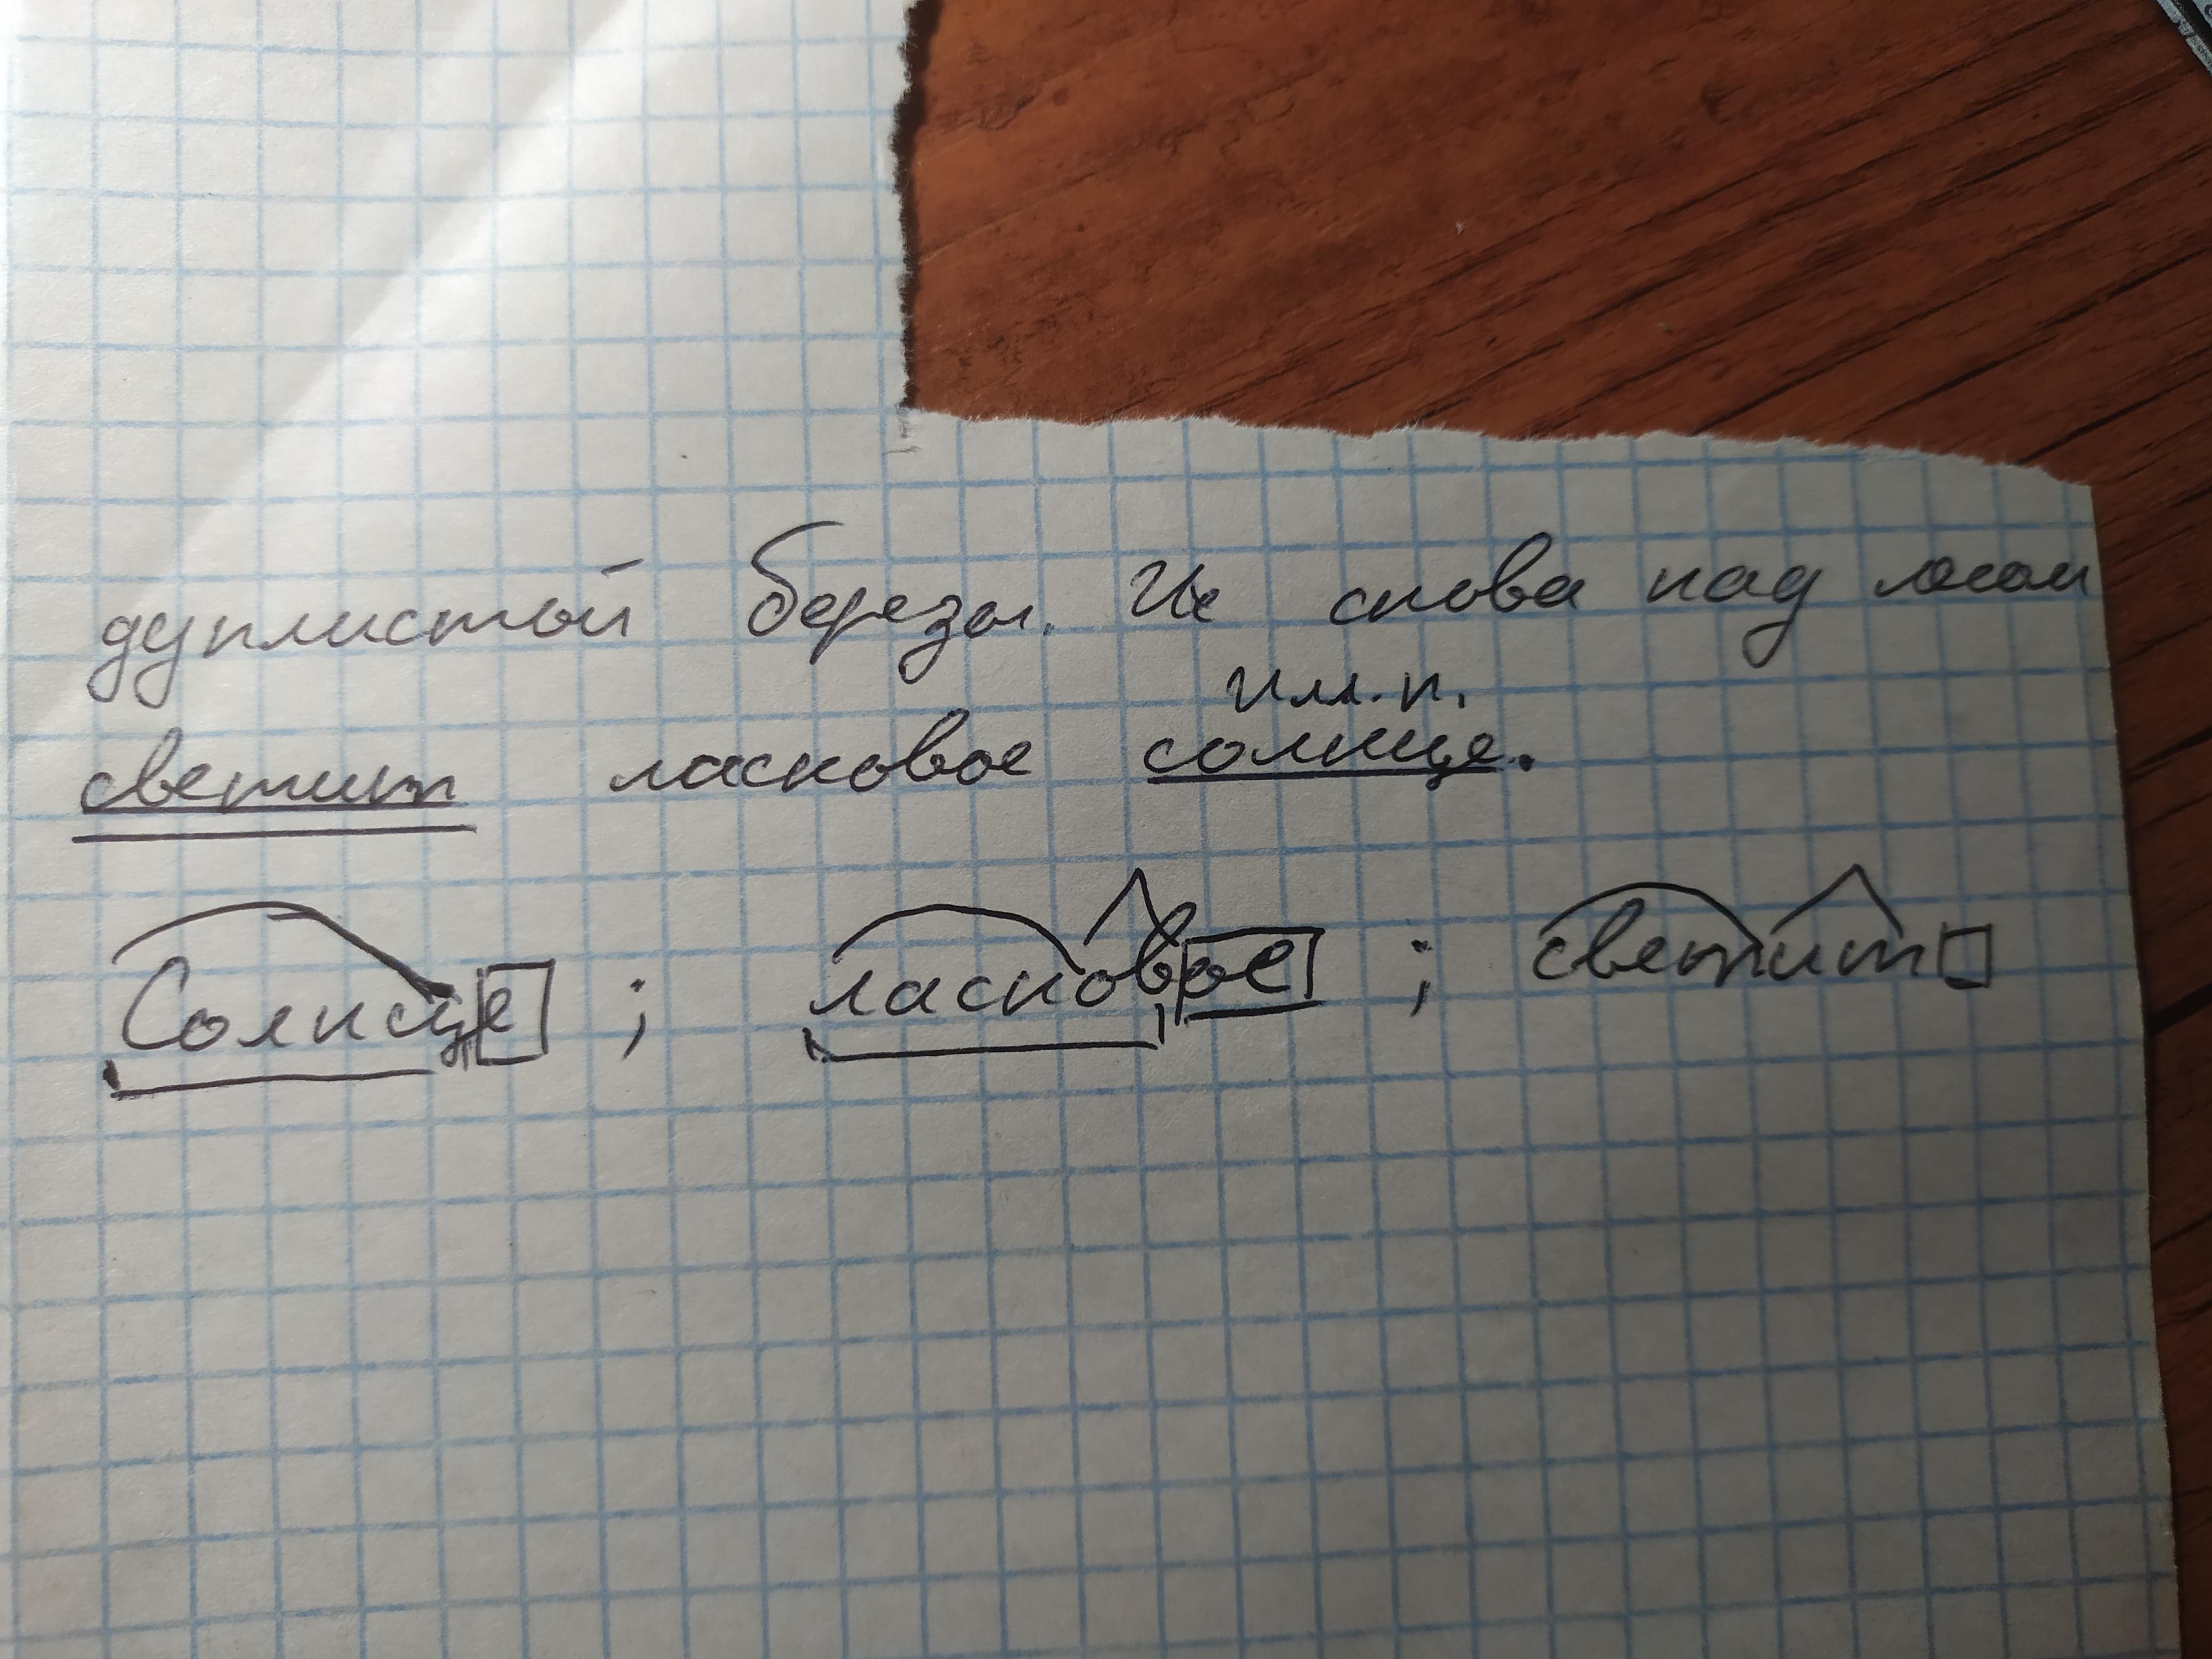 дуплистый березы. И снова над лесом
им.п.
светит ласковое солнце.
Солнце ; ласковое ; светит